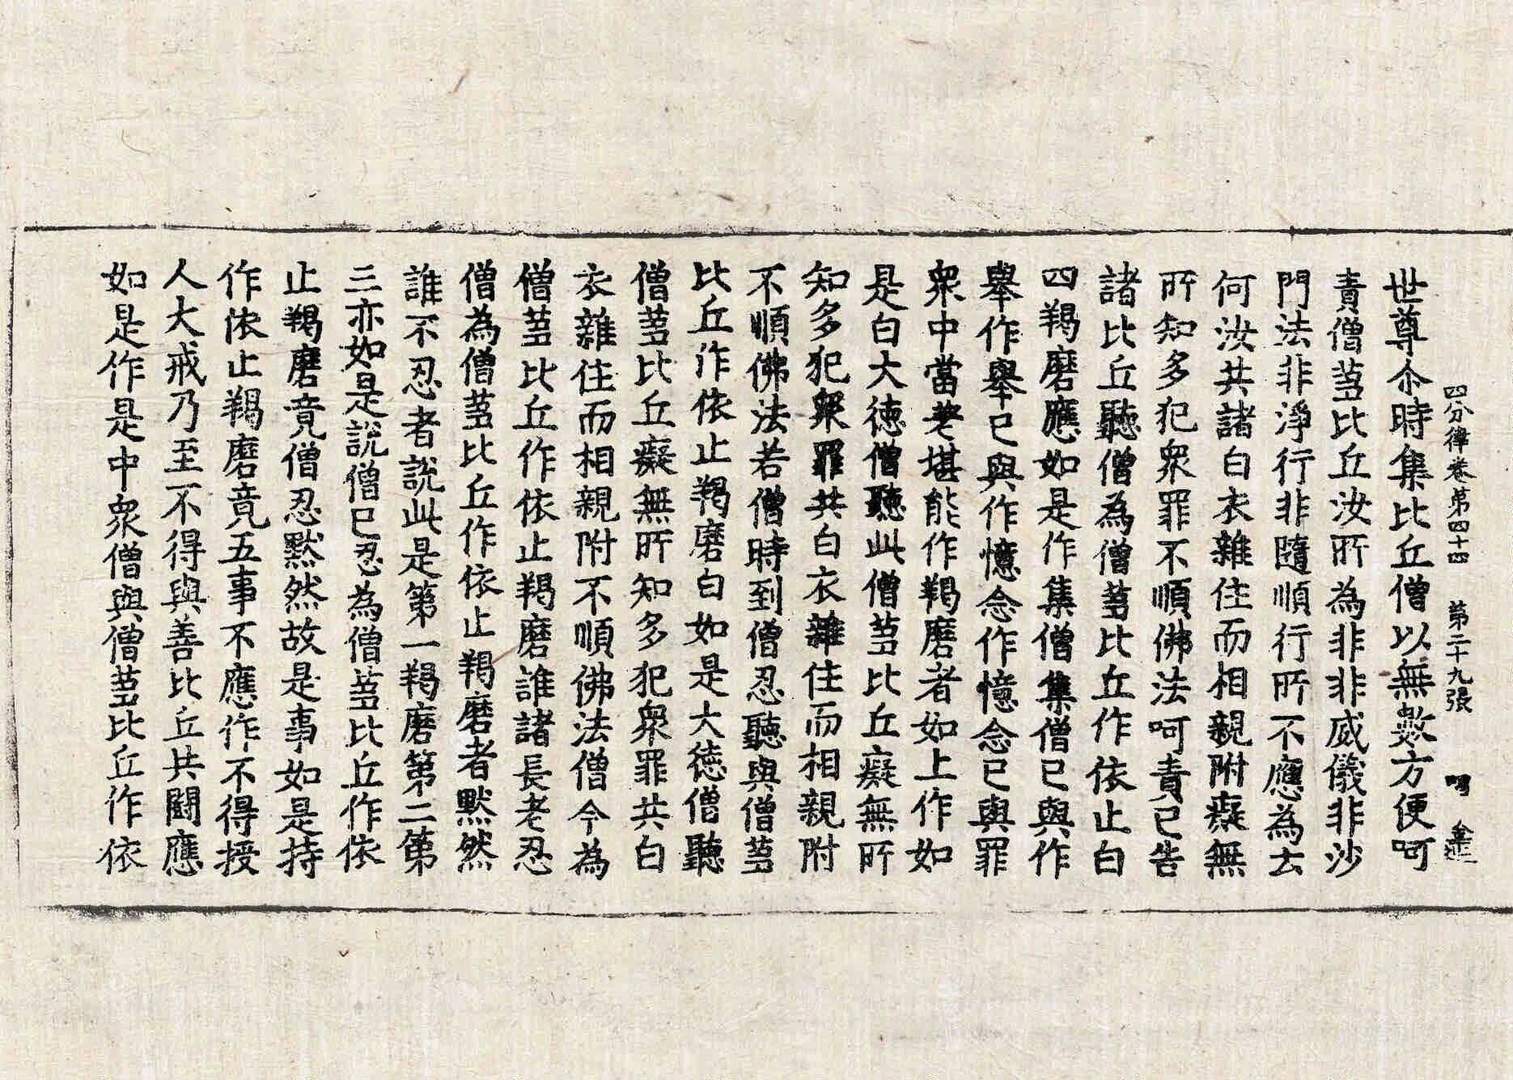 四分律卷第四十四 第二十九張 鳴
世尊尒時集比丘僧以無數方便呵
責僧芻比丘汝所為非非威儀非沙
門法非淨行非隨順行所不應為云
何汝共諸白衣雜住而相親附癡無
所知多犯眾罪不順佛法呵責已告
諸比丘聽僧為僧芻比丘作依止白
四羯磨應如是作集僧集僧已與作
舉作舉已與作憶念作憶念已與罪
眾中當差堪能作羯磨者如上作如
是白大德僧聽此僧芻比丘癡無所
知多犯眾罪共白衣雜住而相親附
不順佛法若僧時到僧忍聽與僧芻
比丘作依止羯磨白如是大德僧聽
僧芻比丘癡無所知多犯眾罪共白
衣雜住而相親附不順佛法僧今為
僧芻比丘作依止羯磨誰諸長老忍
僧為僧芻比丘作依止羯磨者默然
誰不忍者說此是第一羯磨第二第
三亦如是說僧已忍為僧芻比丘作依
止羯磨竟僧忍默然故是事如是持
作依止羯磨竟五事不應作不得授
人大戒乃至不得與善比丘共鬪應
如是作是中眾僧與僧芻比丘作依